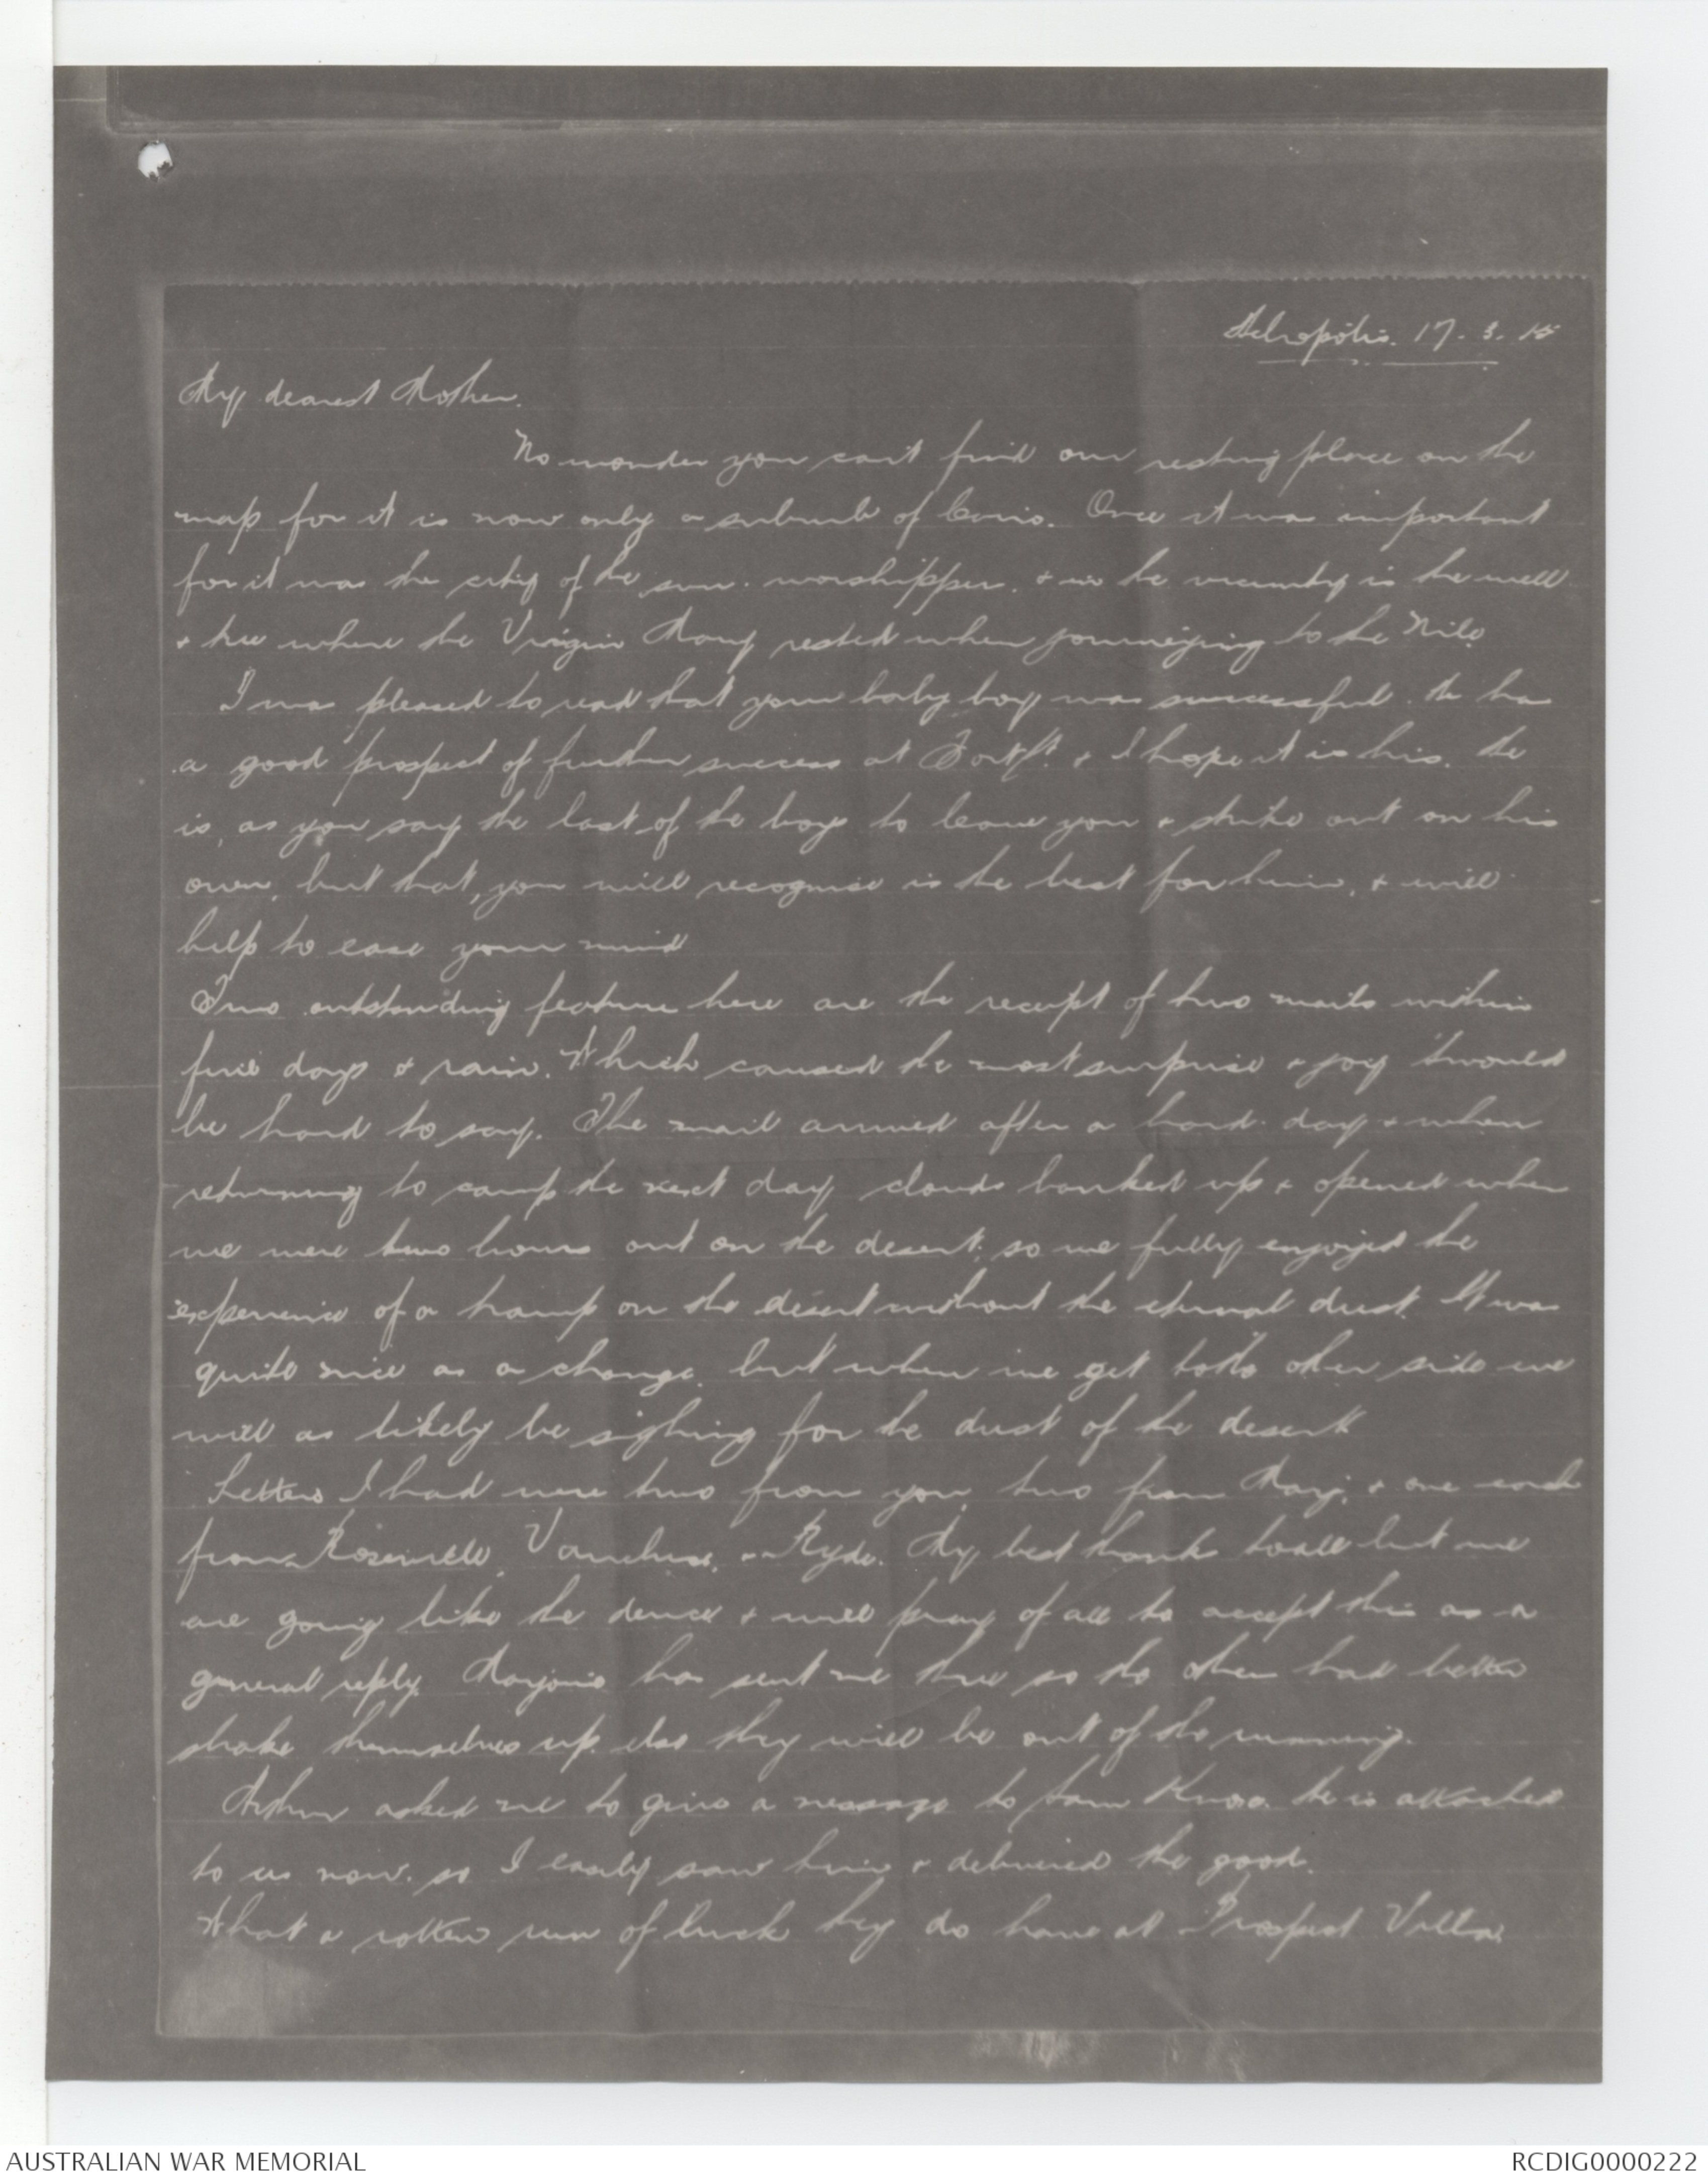 Heliopolis. 17.3.15
My dearest Mother.
No wonder you can't find our resting place on the
map for it is now only a suburb of Cairo. Once it was important
for it was the city of the sun. worshipper. + in the vicinity is the well
+ tree where the Virgin Mary rested when journeying to the Nile
I was pleased to read that your baby boy was successful. He has
a good prospect of further success at & I hope it is his. He
is, as you say the last of the boys to leave you + strike out on his
own, but that, you will recognise is the best for him, + will
help to ease your mind
Two outstanding feature here are the receipt of two mails within
five days + rain. Which caused the most surprise + joy 'twould
be hard to say. The mail arrived after a hard day + when
returning to camp the next day clouds banked up + opened when
we were two hours out on the desert; so we fully enjoyed the
experience of a tramp on the desert without the eternal dust. It was
quite nice as a change. but when we get to the other side we
will as likely be sighing for the dust of the desert
Letters I had were two from you, two from Marj, + one each
from Roseville, Vaucluse, + Ryde. My best thanks to all but we
are going like the deuce + will pray of all to accept this as a
general reply. Marjorie has sent me three so the other had better
shake themselves up. else they will be out of the running.
Arthur asked me to give a message to Sam Knox. he is attached
to us now. so I easily saw him + delivered the good.
What a rotten run of luck they do have at Prospect Villa.
AUSTRALIAN WAR MEMORIAL
RCDIG0000222